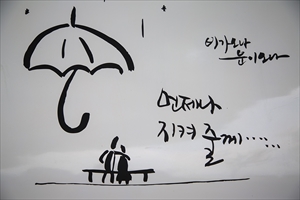 비가오나
눈이오나
언제나
지켜줄께......